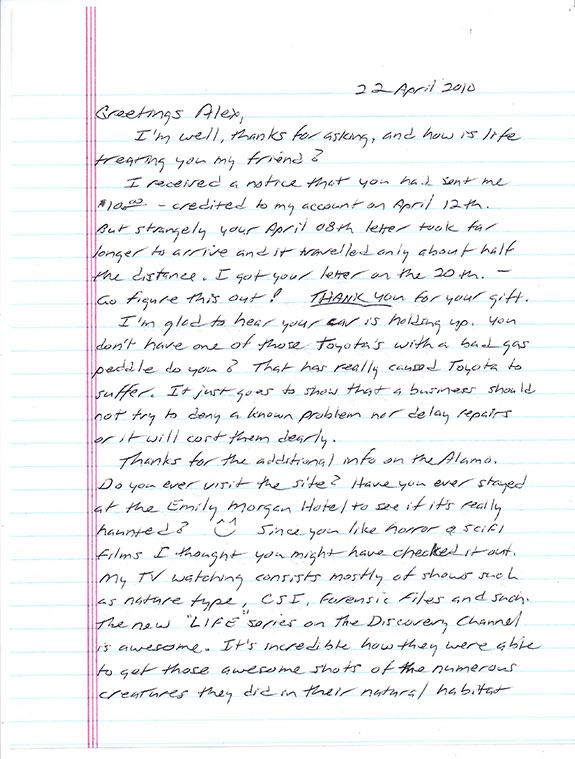 22 April 2010
Greetings Alex,
I'm well, thanks for asking, and how is life
treating you my friend?
I received a notice that you had sent me
$10.00 - credited to my account on April 12th.
But strangely your April 08th letter took far
longer to arrive and it travelled only about half
the distance. I got your letter on the 20th. -
Go figure this out! THANK you for your gift.
I'm glad to hear your car is holding up. you
don't have one of those Toyota's with a bad gas
peddle do you? That has really caused Toyota to
suffer. It just goes to show that a business should
not try to deny a known problem nor delay repairs
or it will cost them dearly.
Thanks for the additional info on the Alamo.
Do you ever visit the site? Have you ever stayed
at the Emily Morgan Hotel to see if it's really
haunted? Since you like horror & scifi
films I thought you might have checked it out.
My TV watching consists mostly of shows such
as nature type, CSI, Forensic Files and such.
The new "LIFE" series on The Discovery Channel
is awesome. It's incredible how they were able
to get those awesome shots of the numerous
creatures they did in their natural habitat